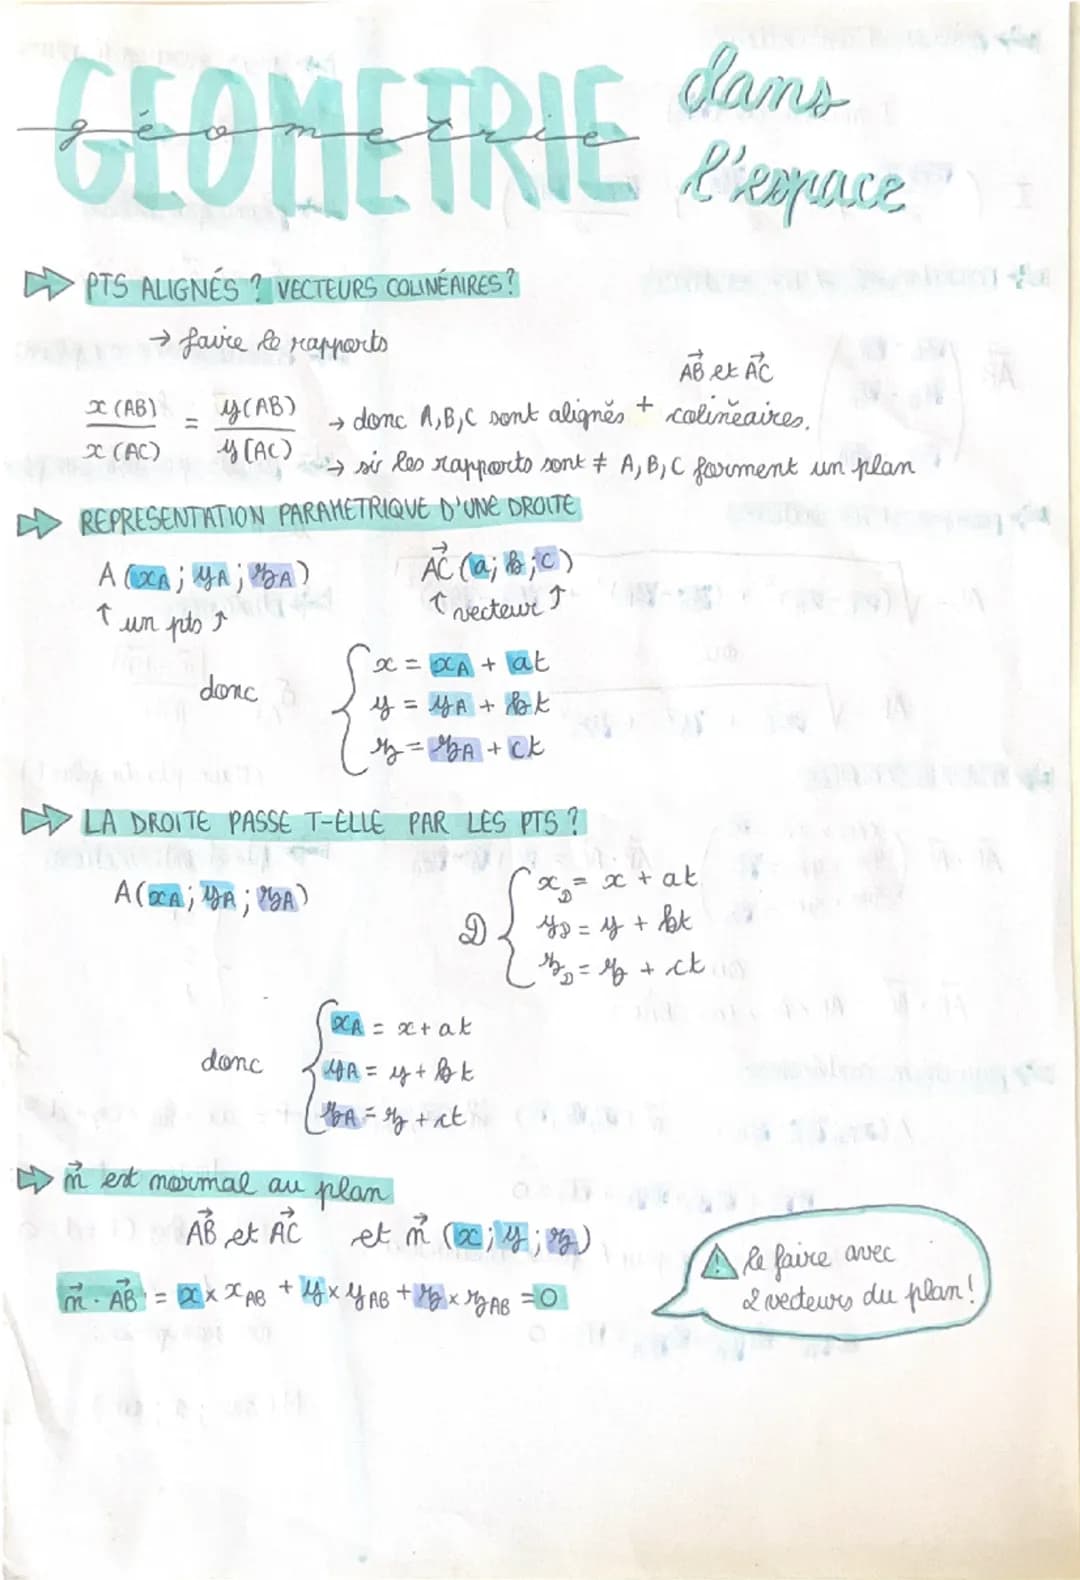 GEOMETRIE
géometrie
dans
l'espace
PTS ALIGNÉS ? VECTEURS COLINÉAIRES ?
→ faire le rapports
x(AB)/x(AC) = y(AB)/y(AC) → donc A,B,C sont alignés + AB⃗ et AC⃗ colinéaires.
→ si les rapports sont ≠ A,B,C forment un plan
REPRESENTATION PARAMETRIQUE D'UNE DROITE
A (xA ; yA ; zA) AC⃗ (a ; b ; c)
↑ un pts ↑ ↑ vecteur ↑
donc { x = xA + at
y = yA + bt
z = zA + ct
LA DROITE PASSE T-ELLE PAR LES PTS ?
A(xA ; yA ; zA)
D { xD = x + at
yD = y + bt
zD = z + ct
donc { xA = x + at
yA = y + bt
zA = z + ct
n⃗ est normal au plan
AB⃗ et AC⃗ et n⃗ (x ; y ; z)
n⃗ · AB⃗ = x × xAB + y × yAB + z × zAB = 0
⚠ le faire avec
2 vecteurs du plan !